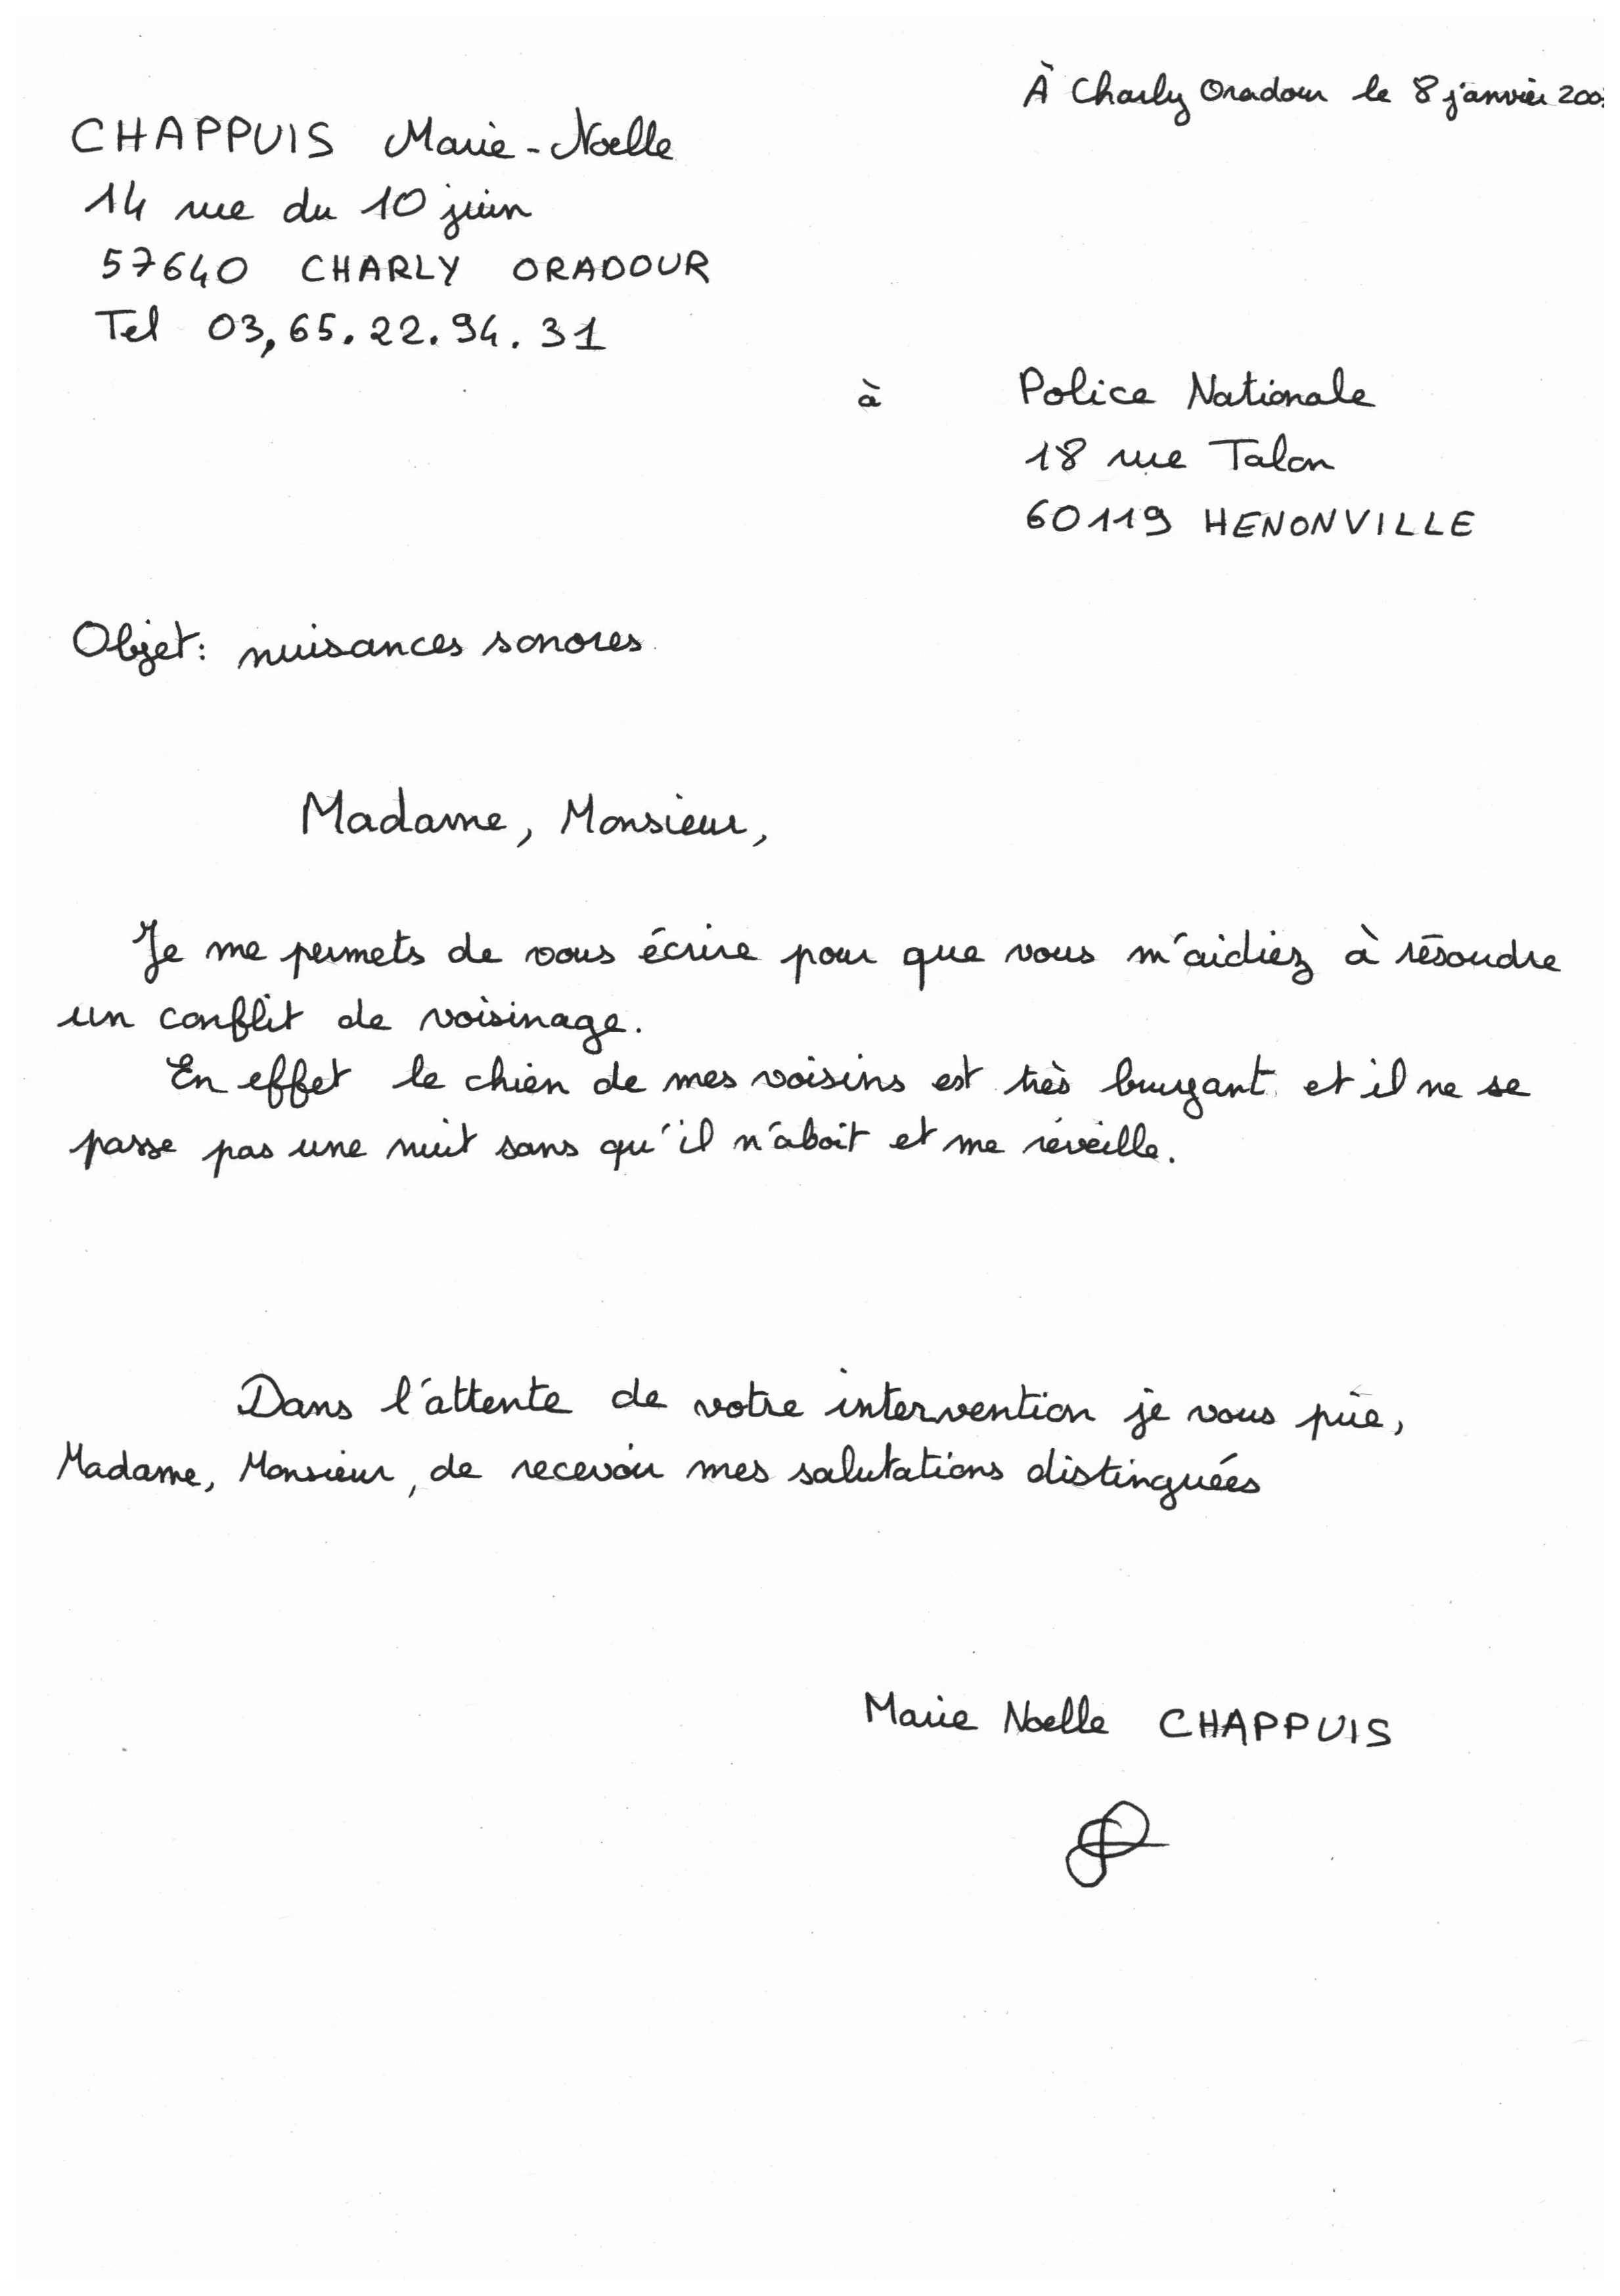 À Charly Oradour le 8 janvier 200
CHAPPUIS Marie-Noelle
14 rue du 10 juin
57640 CHARLY ORADOUR
Tel 03,65.22.94.31
à Police Nationale
18 rue Talon
60119 HENONVILLE
Objet: nuisances sonores
Madame, Monsieur,
Je me permets de vous écrire pour que vous m'aidiez à résoudre
un conflit de voisinage.
En effet le chien de mes voisins est très bruyant et il ne se
passe pas une nuit sans qu'il n'aboit et me réveille.
Dans l'attente de votre intervention je vous prie,
Madame, Monsieur, de recevoir mes salutations distinguées
Marie Noelle CHAPPUIS